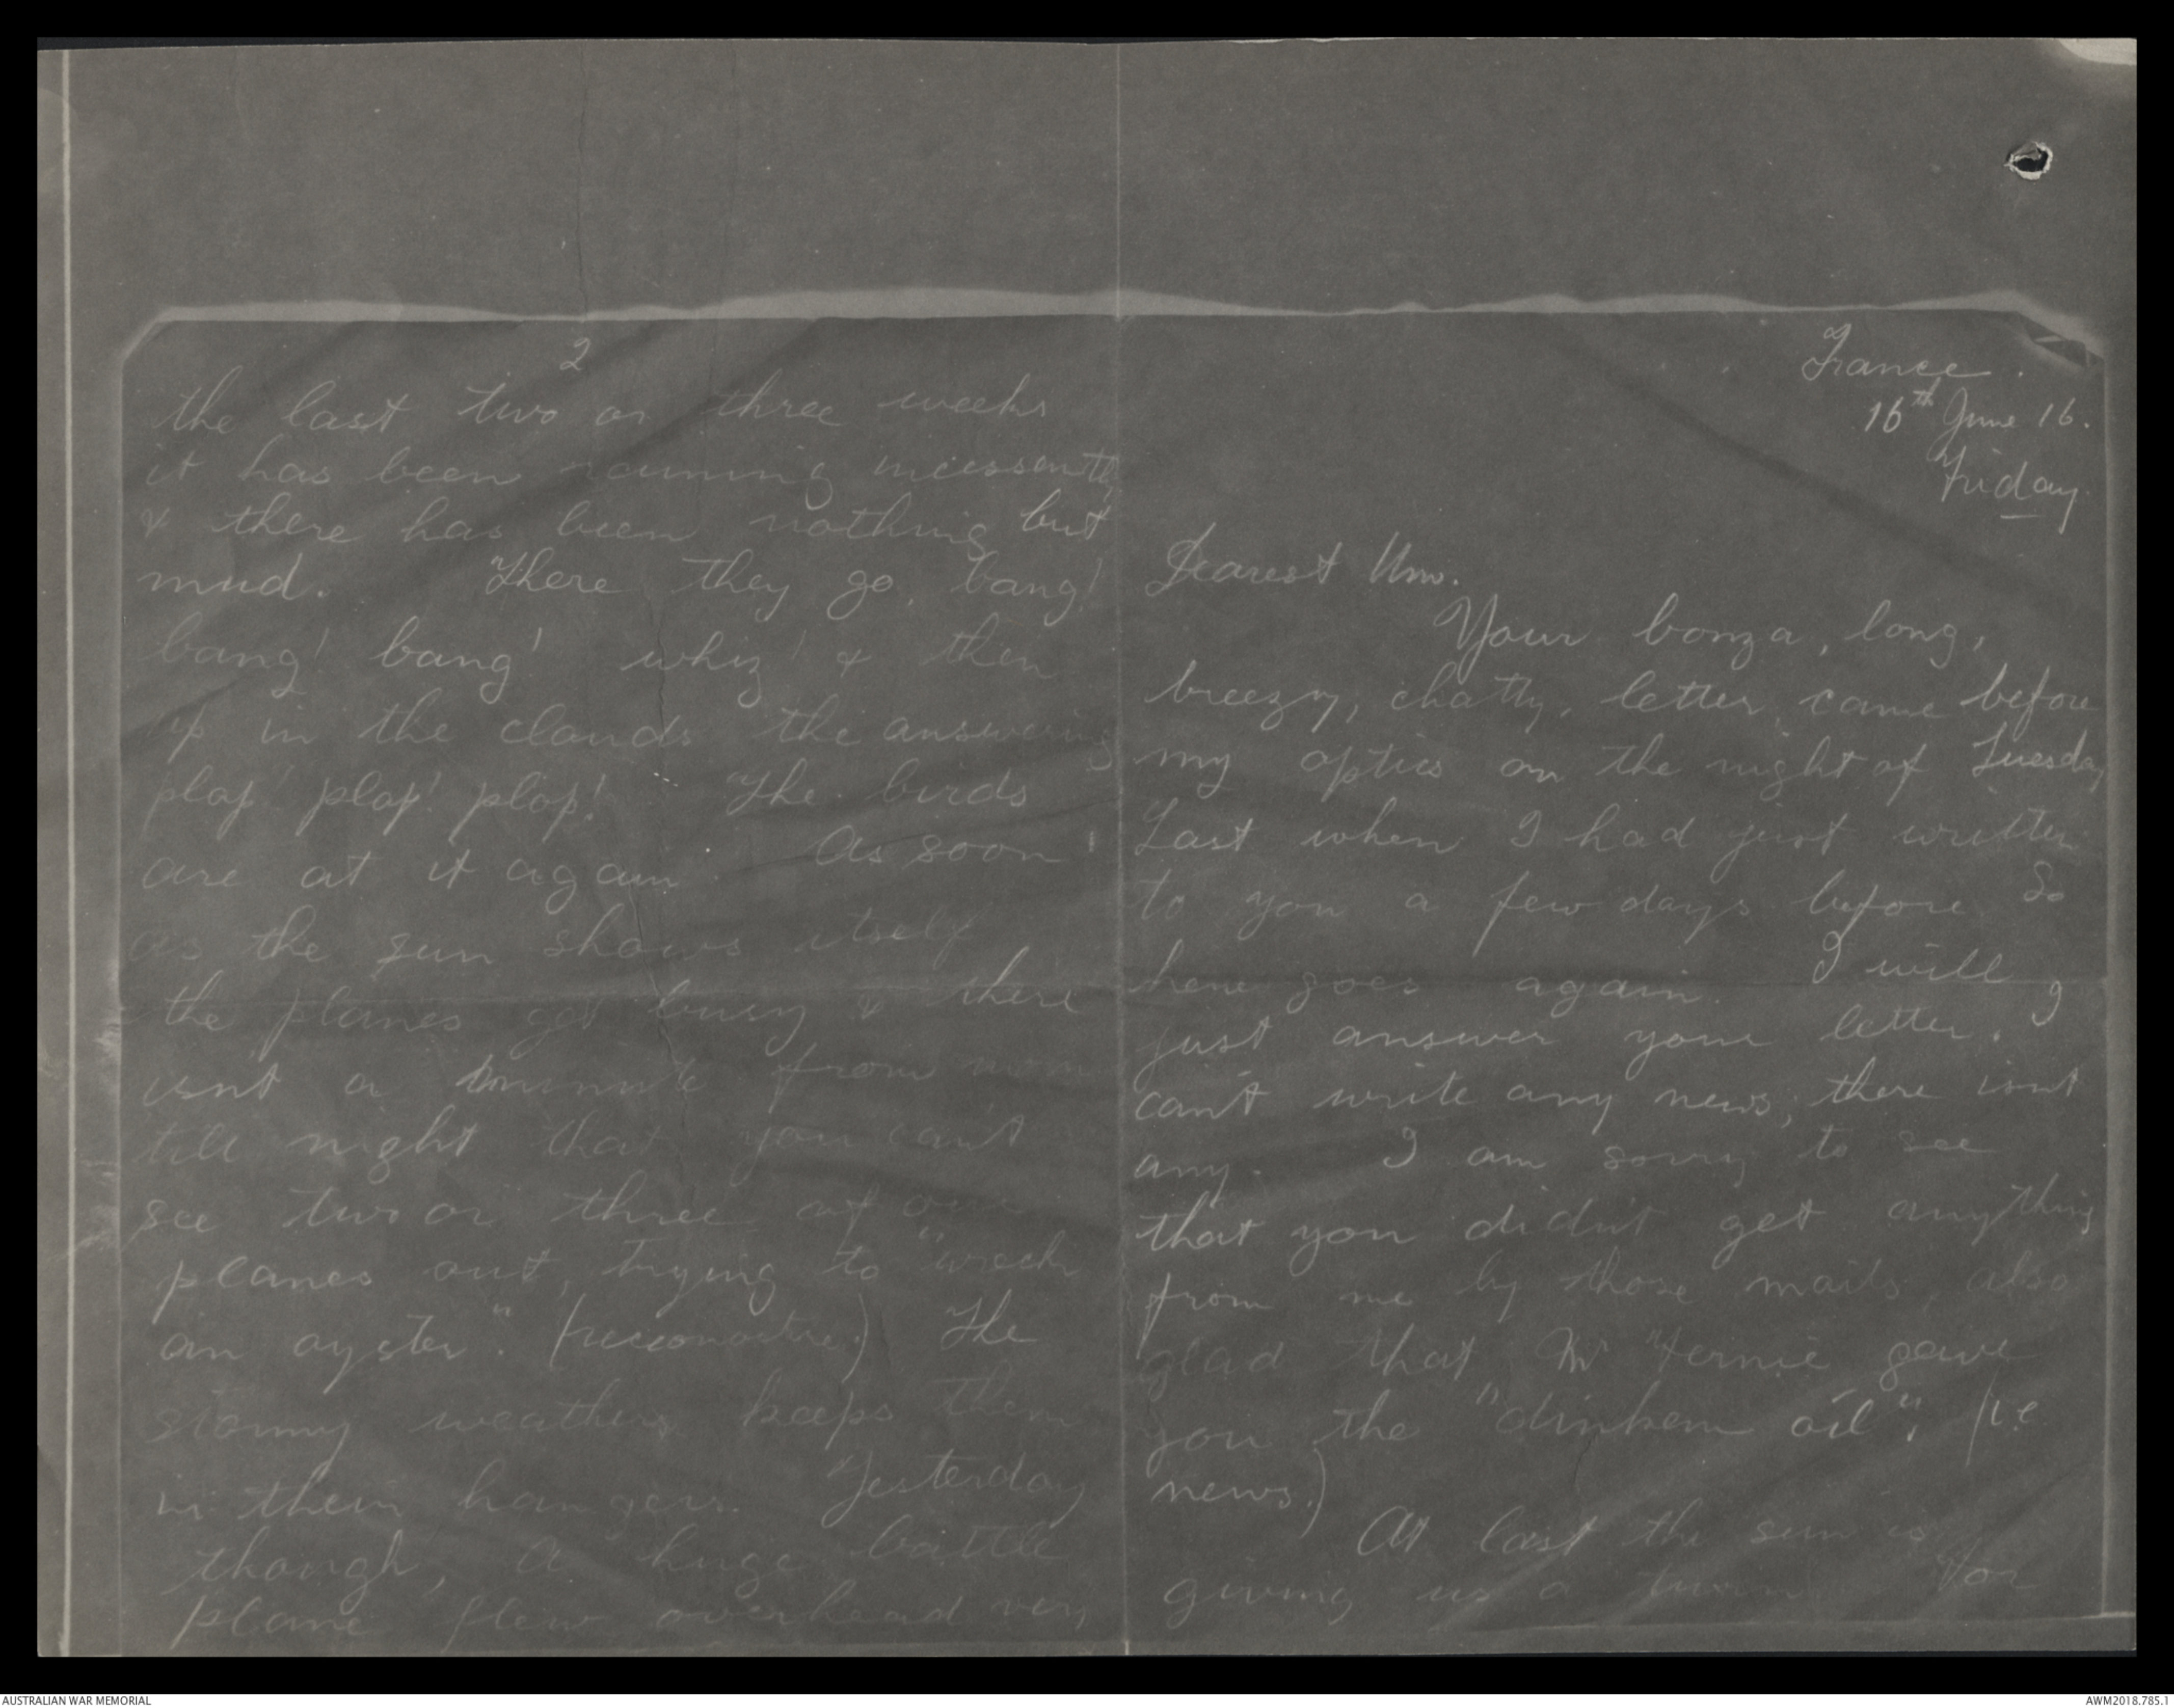 France.
16th June 16.
Friday.
Dearest Um.
Your bonza, long,
breezy, chatty, letter, came before
my optics on the night of Tuesday
Last when I had just written
to you a few days before So
here goes again. I will
just answer your letter. I
can't write any news, there isnt
any. I am sorry to see
that you didn't get anything
from me by those mails, also
glad that Mr Fernie gave
you the "dinkem oil", (i.e
news.)
At last the sun is
giving us a turn For
2
the last two or three weeks
it has been raining incessantly
& there has been nothing but
mud. There they go, bang!
bang! bang! whiz! & then
up in the clouds the answering
plop! plop! plop! The birds
are at it again. As soon
as the sun shows itself
the planes get busy & there
isnt a minute from morn
till night that you can't
see two or three of our
planes out, trying to "wreck
an oyster". (reconnoitre.) The
stormy weather keeps them
in their hangers. Yesterday
though, a huge battle
plane flew overhead very
AUSTRALIAN WAR MEMORIAL
AWM2018.785.1